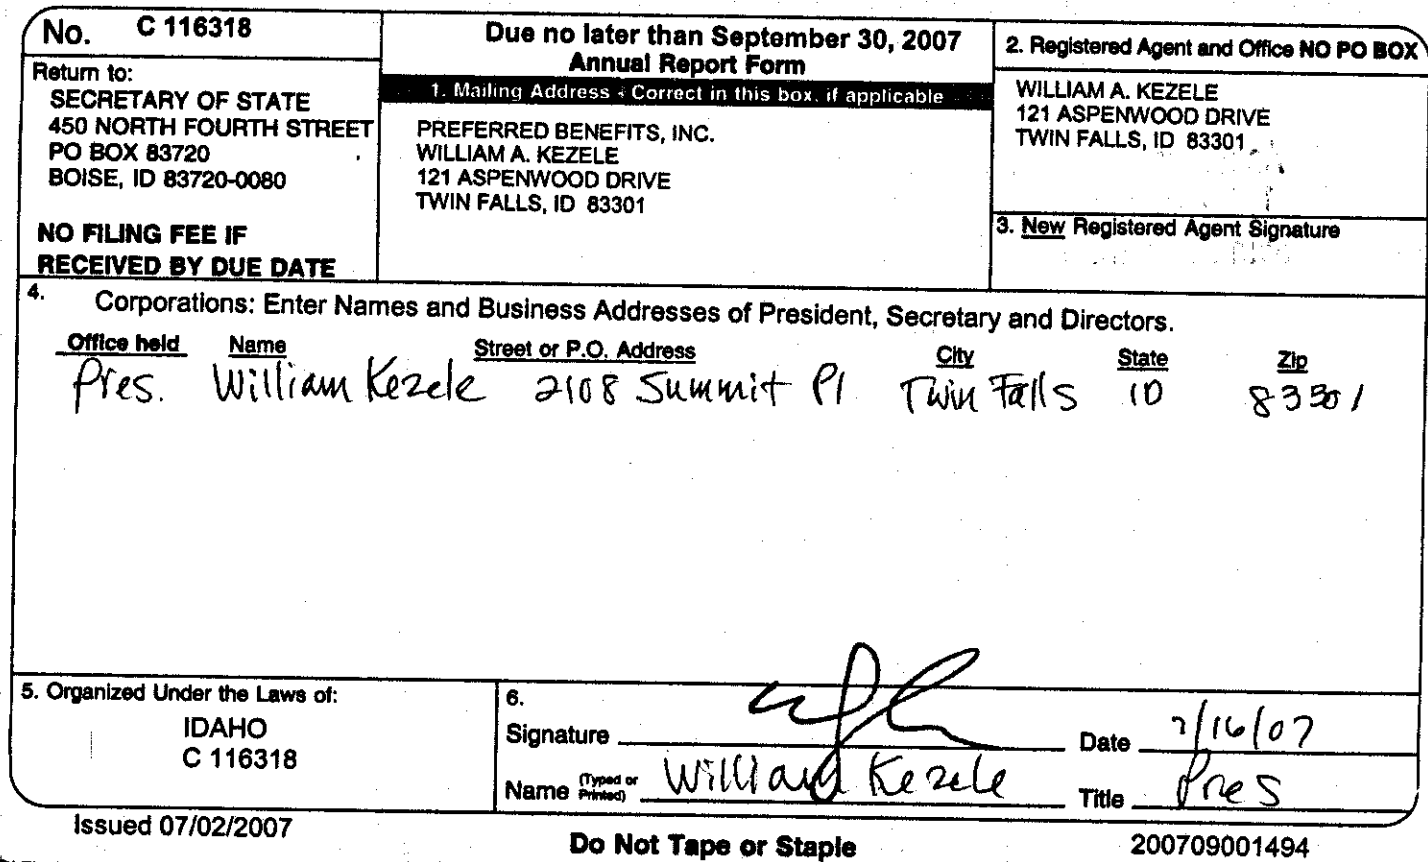 No. C 116318
Return to:
SECRETARY OF STATE
450 NORTH FOURTH STREET
PO BOX 83720
BOISE, ID 83720-0080
NO FILING FEE IF
RECEIVED BY DUE DATE
Due no later than September 30, 2007
Annual Report Form
1. Mailing Address - Correct in this box, if applicable
PREFERRED BENEFITS, INC.
WILLIAM A. KEZELE
121 ASPENWOOD DRIVE
TWIN FALLS, ID 83301
2. Registered Agent and Office NO PO BOX
WILLIAM A. KEZELE
121 ASPENWOOD DRIVE
TWIN FALLS, ID 83301
3. New Registered Agent Signature
4. Corporations: Enter Names and Business Addresses of President, Secretary and Directors.
Office held Name Street or P.O. Address City State Zip
Pres. William Kezele 2108 Summit Pl Twin Falls ID 83301
5. Organized Under the Laws of:
IDAHO
C 116318
6.
Signature Date 7/16/07
Name (Typed or Printed) William Kezele Title Pres
Issued 07/02/2007
Do Not Tape or Staple
200709001494